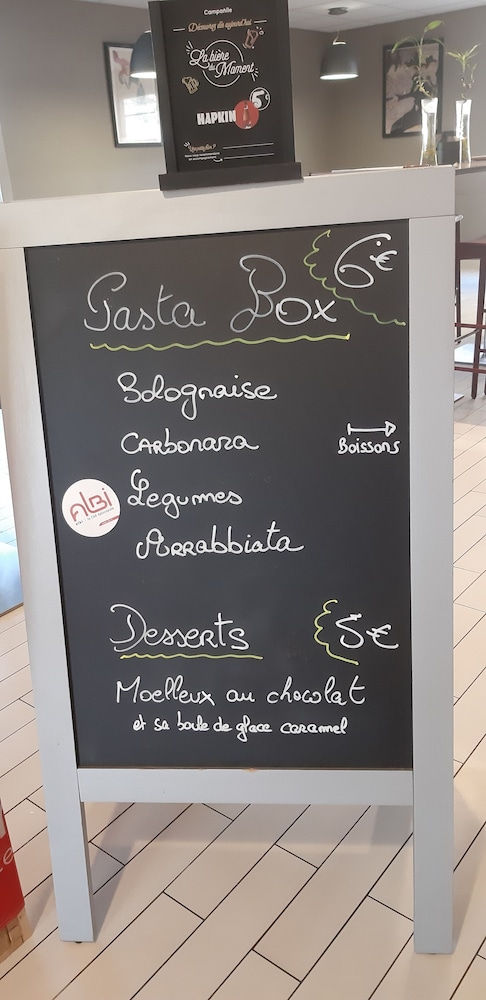 Campanile
Découvrez dès aujourd'hui
La bière
du Moment
HAPKIN 5€
Pasta Box 6€
Bolognaise
CARBONARA
Boissons
Légumes
ALBI
ARRABBIATA
Desserts 5€
Moelleux au chocolat
et sa boule de glace caramel